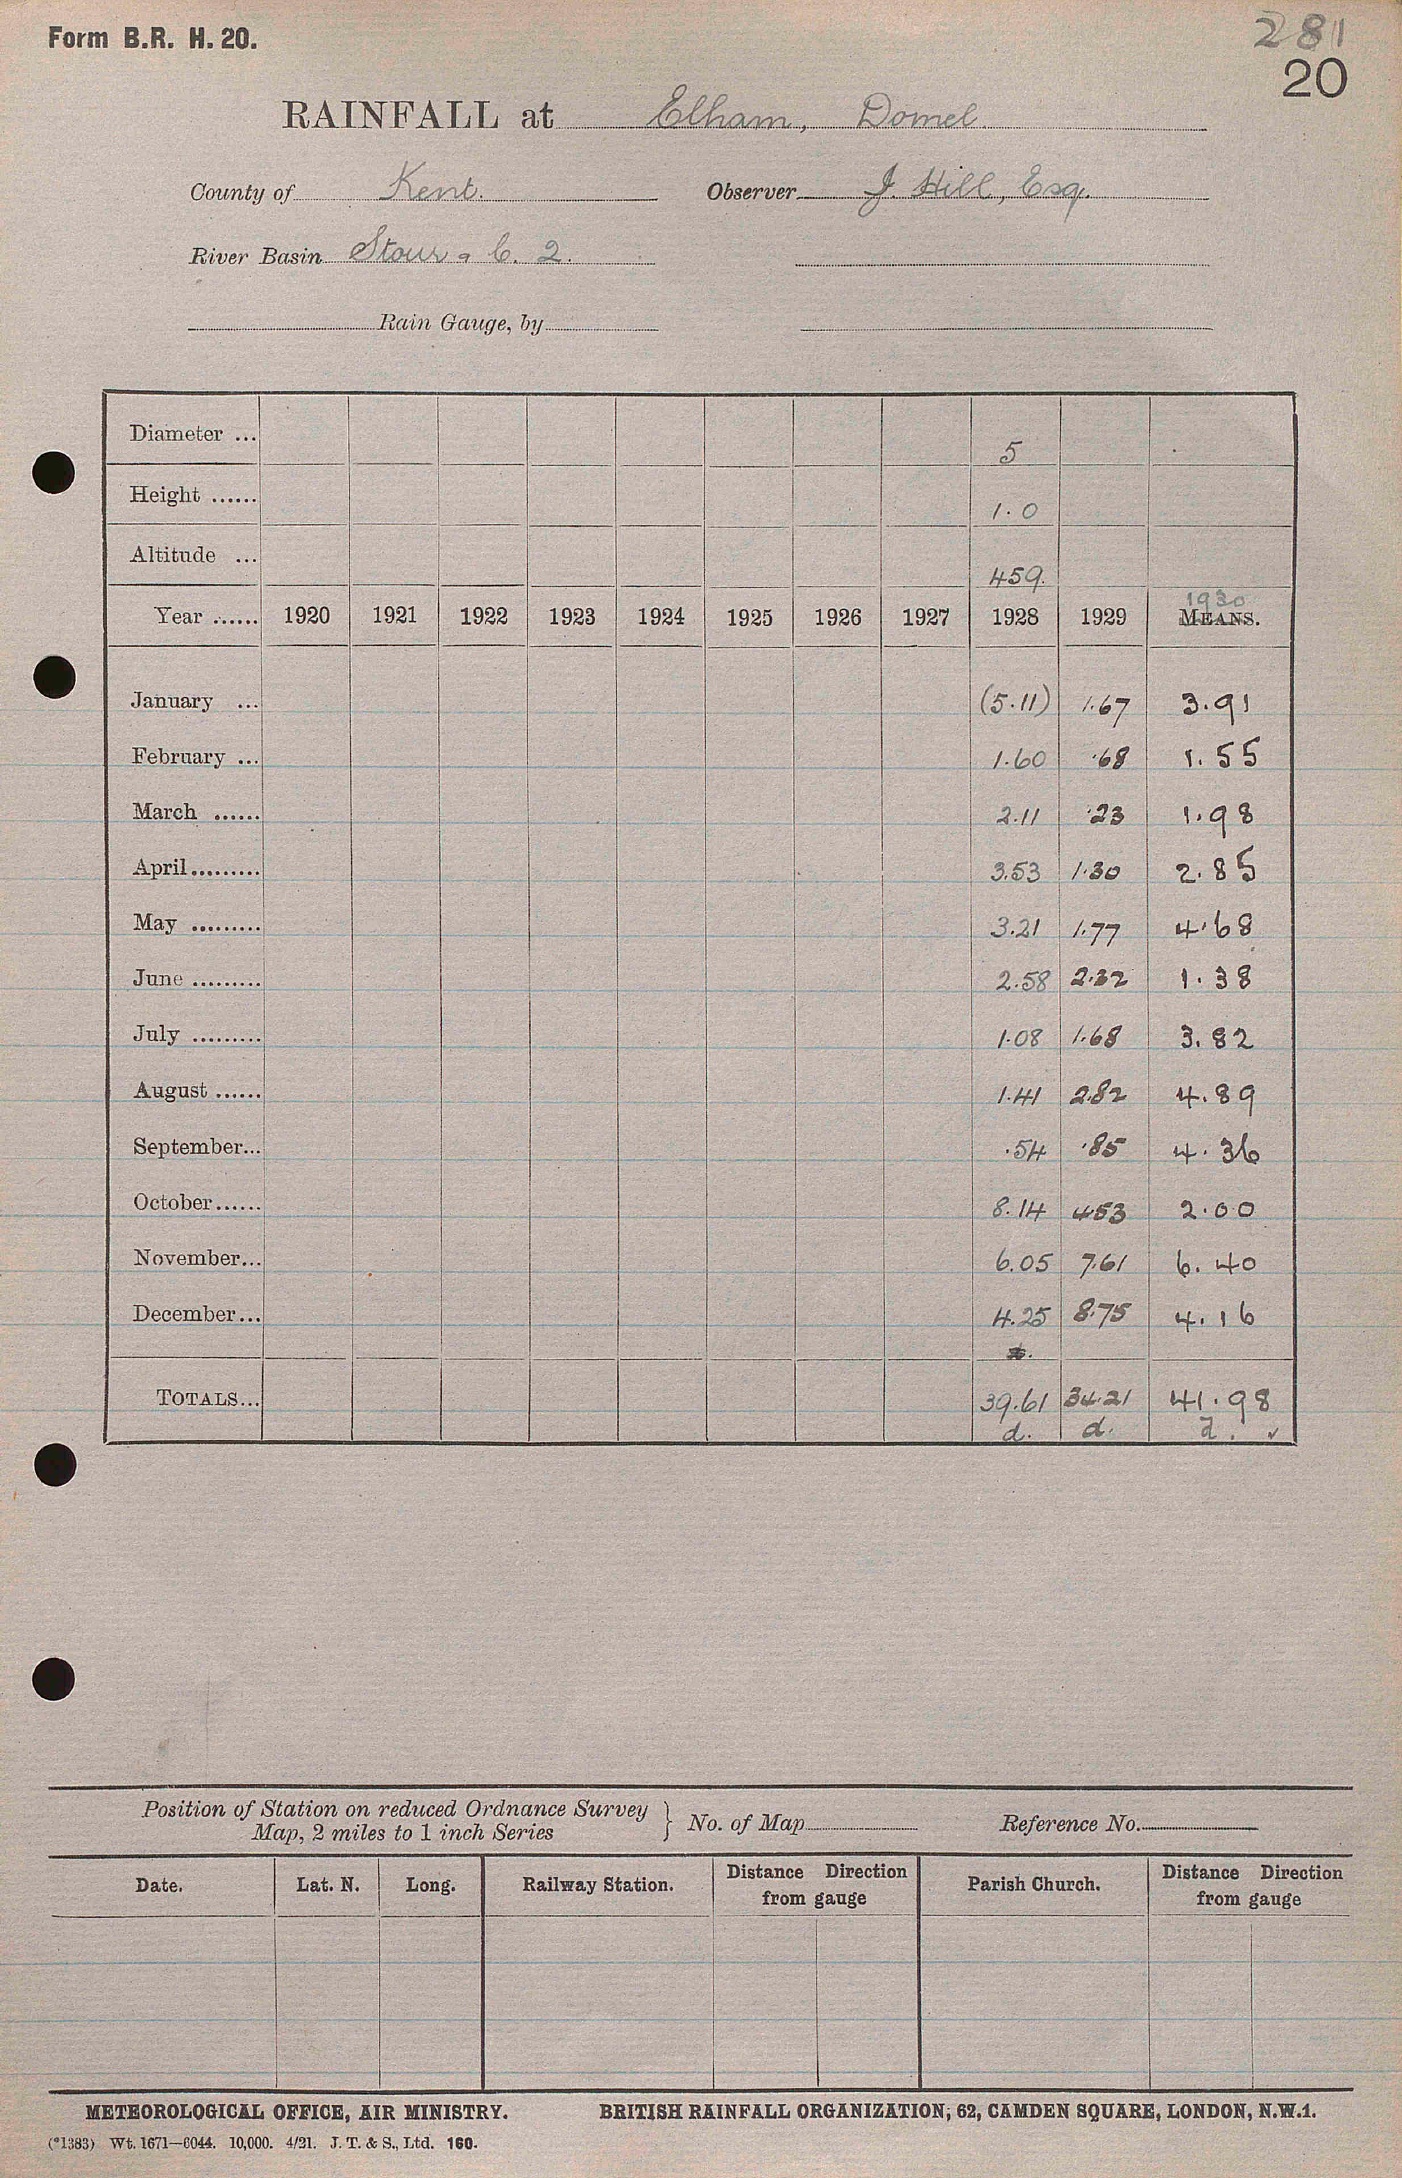 Form B.R. H. 20.
281
20
RAINFALL at Elham, Domel.
County of Kent. Observer J. Hill, Esq.
River Basin Stour & C. 2.
Rain Gauge, by
Diameter ... 5
Height ...... 1.0
Altitude ... 459.
1930
Year ...... 1920 1921 1922 1923 1924 1925 1926 1927 1928 1929 MEANS.
January ... (5.11) 1.67 3.91
February ... 1.60 .68 1.55
March ...... 2.11 .23 1.98
April......... 3.53 1.30 2.85
May ......... 3.21 1.77 4.68
June ......... 2.58 2.32 1.38
July ......... 1.08 1.68 3.82
August ...... 1.41 2.82 4.89
September... .54 .85 4.36
October...... 8.14 4.53 2.00
November... 6.05 7.61 6.40
December... 4.25 8.75 4.16
TOTALS... 39.61 34.21 41.98
d. d. d.
Position of Station on reduced Ordnance Survey
Map, 2 miles to 1 inch Series } No. of Map Reference No.
Date. Lat. N. Long. Railway Station. Distance Direction from gauge Parish Church. Distance Direction from gauge
METEOROLOGICAL OFFICE, AIR MINISTRY. BRITISH RAINFALL ORGANIZATION, 62, CAMDEN SQUARE, LONDON, N.W.1.
(*1383) Wt. 1671—6044. 10,000. 4/21. J. T. & S., Ltd. 160.